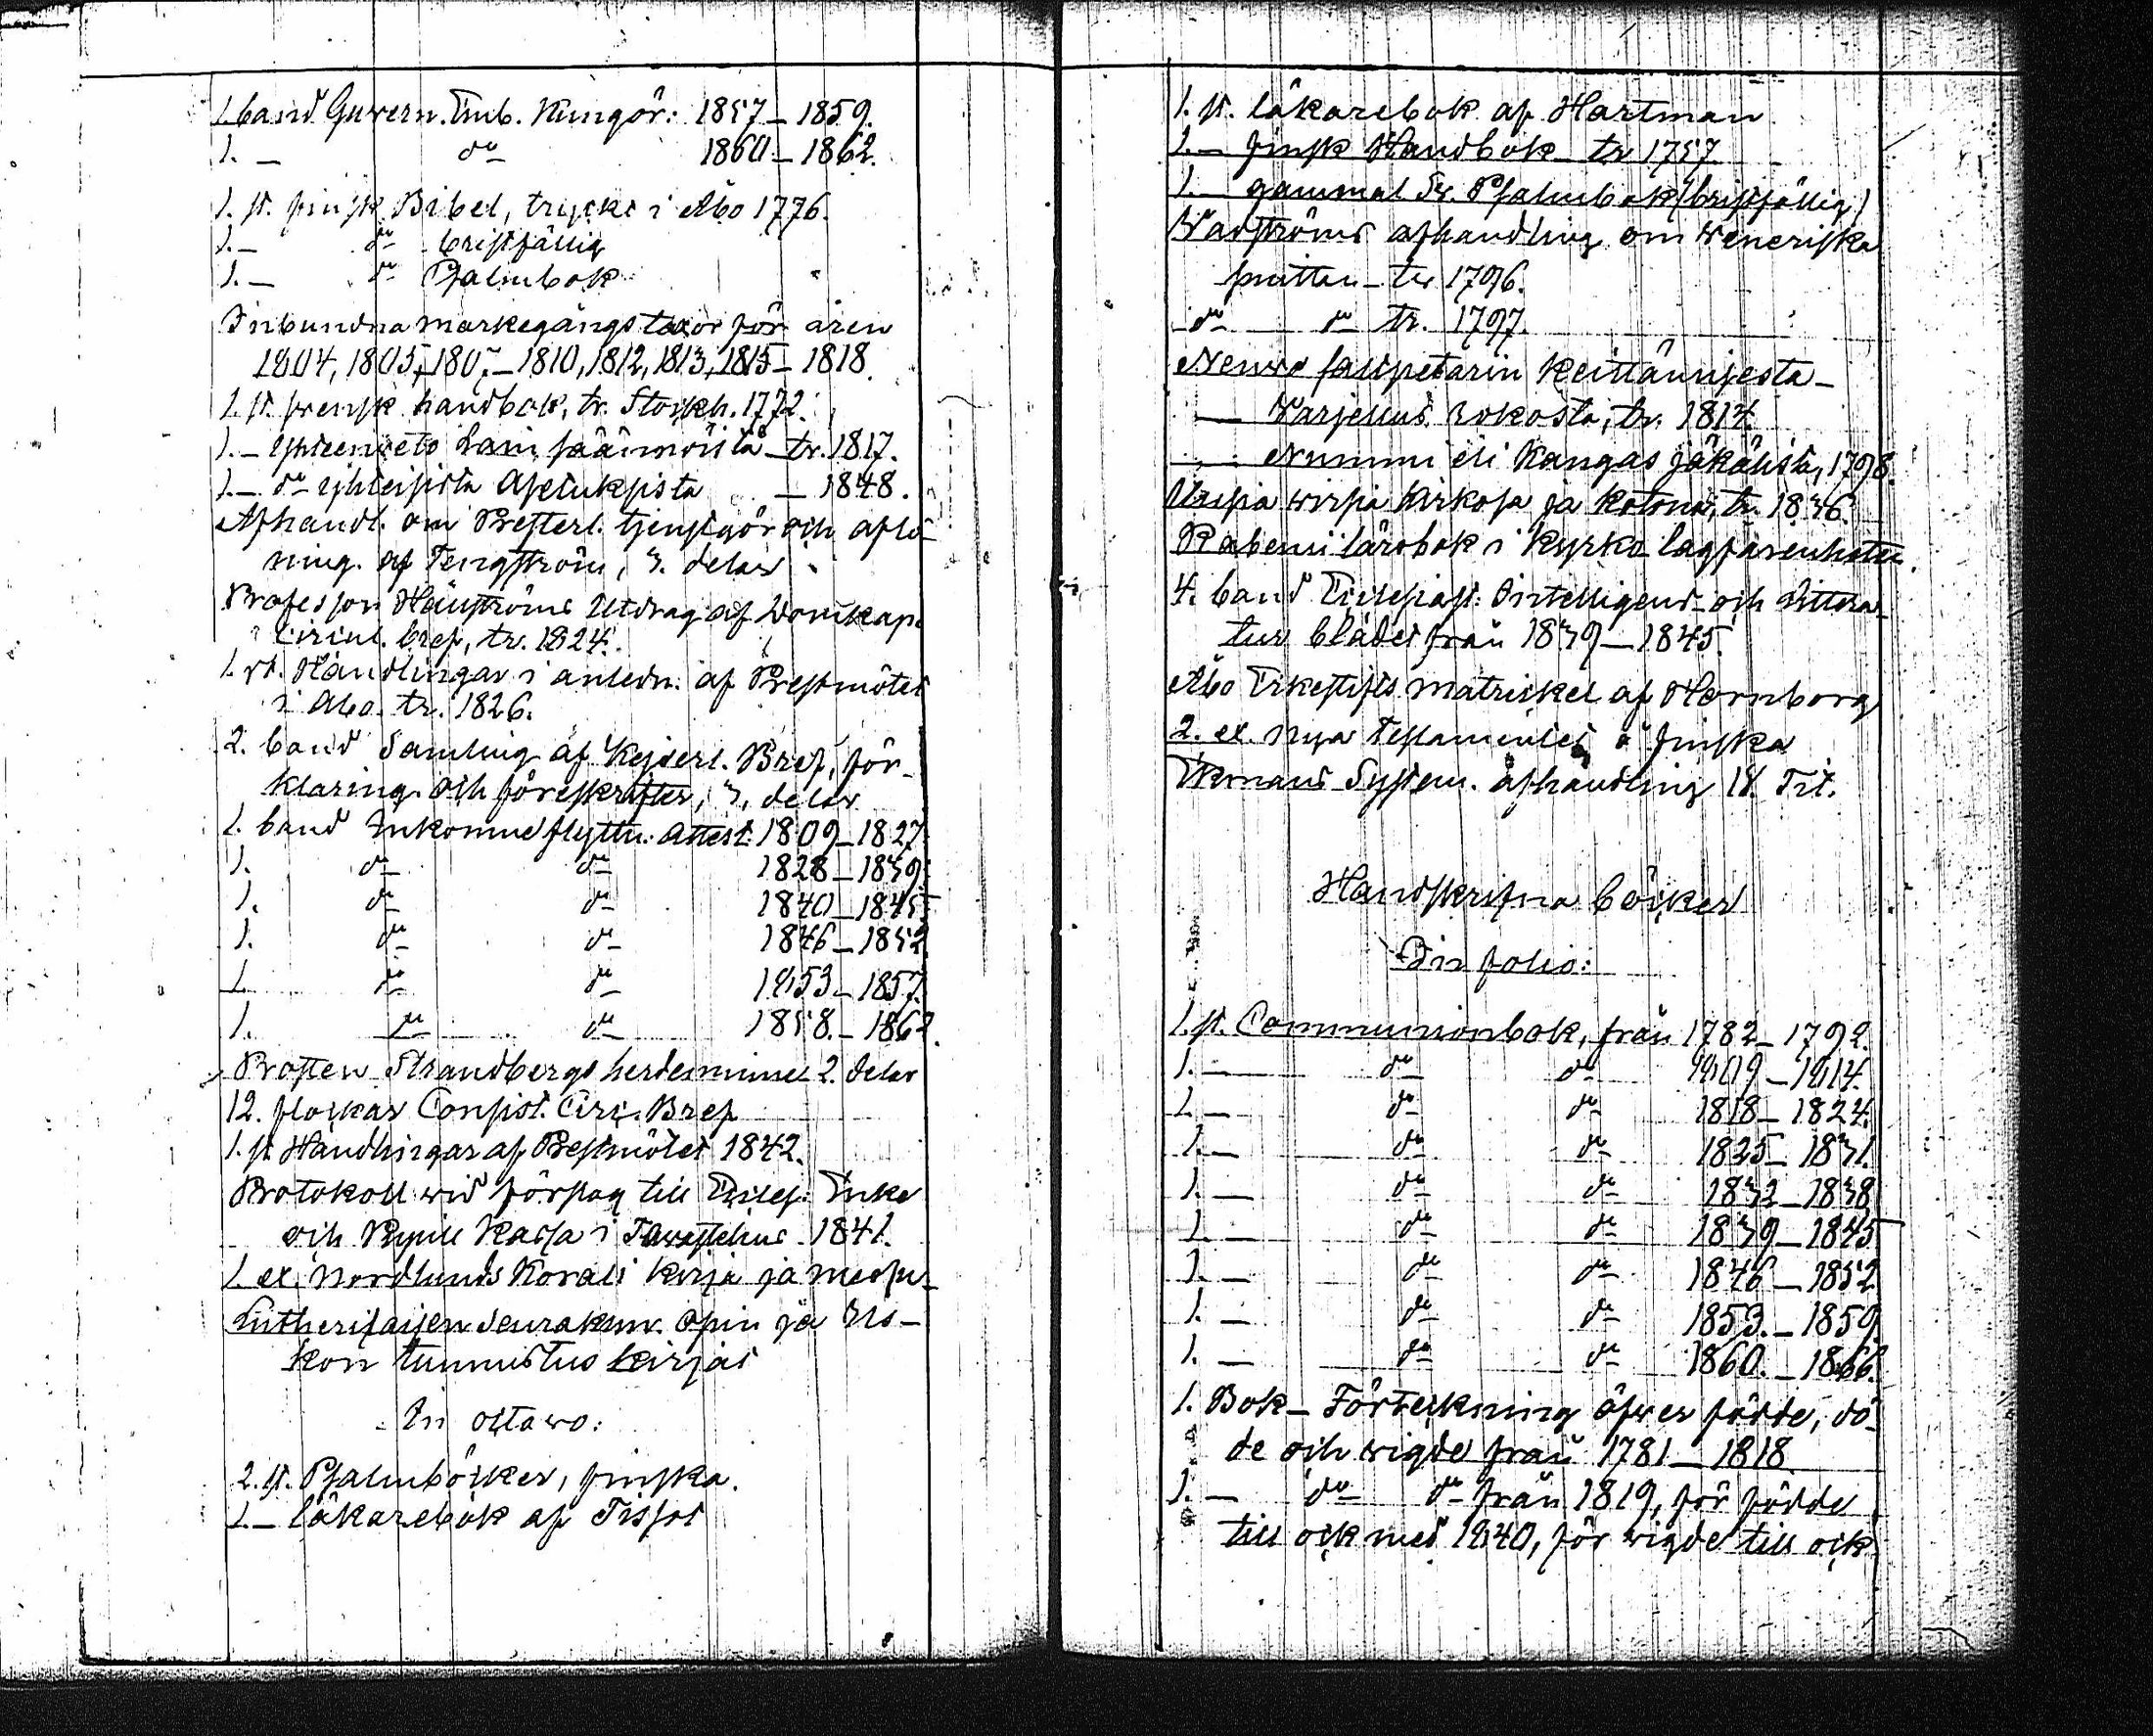 1. band Guvern. Emb. Kungör: 1857–1859.
1. – do 1860–1862.
1. st. finsk Bibel, tryckt i Åbo 1776.
1. – do bristfällig
1. – do Psalmbok
Inbundna markegångs taxor för åren
1804, 1805, 1807–1810, 1812, 1813, 1815–1818.
1. st. svensk handbok, tr. Stockh. 1772.
1. – Yhteenveto Lain säännöistä – tr. 1817.
1. – do yhteisistä Asetuksista – 1848.
Afhandl. om Presterl. tjenstgör. och aflö-
ning. af Tengström, 3. delar
Professor Hällströms Utdrag af Domkap.
Cirkul. bref, tr. 1824.
1. st. Handlingar i anledn. af Prestmötet
i Åbo. tr. 1826.
2. band Samling af Kejserl. Bref, för-
klaring. och föreskrifter, 3. delar
1. band Inkomne flyttn. attest. 1809–1827
1. do do 1828–1839.
1. do do 1840–1845
1. do do 1846–1852
1. do do 1853–1857.
1. do do 1858.–1862.
Prosten Strandbergs herdeminne 2. delar
12. flockar Consist. Circ. Bref
1. st. Handlingar af Prestmötet 1842.
Protokoll vid förslag till Eccles. Enke
och Pupill Kassa i Tavastehus 1841.
1. ex. Nordlunds Korali kirja ja messu-
Lutherisaisen Seurakunn. Opin ja Us-
kon tunnustus kirjat
In octavo:
2. st. Psalmböcker, finska.
1. – läkarebok af Tissot
1. st. läkarebok af Hartman
1. – finsk Handbok tr 1757
1. – gammal Sv. Psalmbok (bristfällig)
afhandling om Veneriska
smittan – tr 1796.
do do tr. 1797.
Neuvo salpetarin keittämisestä –
– Varjellus rokosta, tr. 1814.
– Nummi eli Kangas jäkälistä, 1798.
Uusia virsiä Kirkosa ja kotona, tr. 1836.
Rabenii lärobok i kyrko lagfarenheten.
4. band Ecclesiast. Intelligens- och Littera-
tur bladet från 1839–1845.
Åbo Erkestifts matrickel af Hornborg
2. ex. nya Testamentet å finska
Ekmans System. afhandling 18. Tit.
Handskrifna böcker
In folio:
1. st. Communionbok, från 1782–1792.
1. – do do 1809–1814.
1. – do do 1818–1824.
1. – do do 1825–1831.
1. – do do 1832–1838
1. – do do 1839–1845
1. – do do 1846–1852
1. – do do 1853.–1859.
1. – do do 1860.–1866.
1. Bok – Förteckning öfver födde, dö-
de och vigde från 1781–1818
1. – do do från 1819, för födde
till och med 1840, för vigde till ock